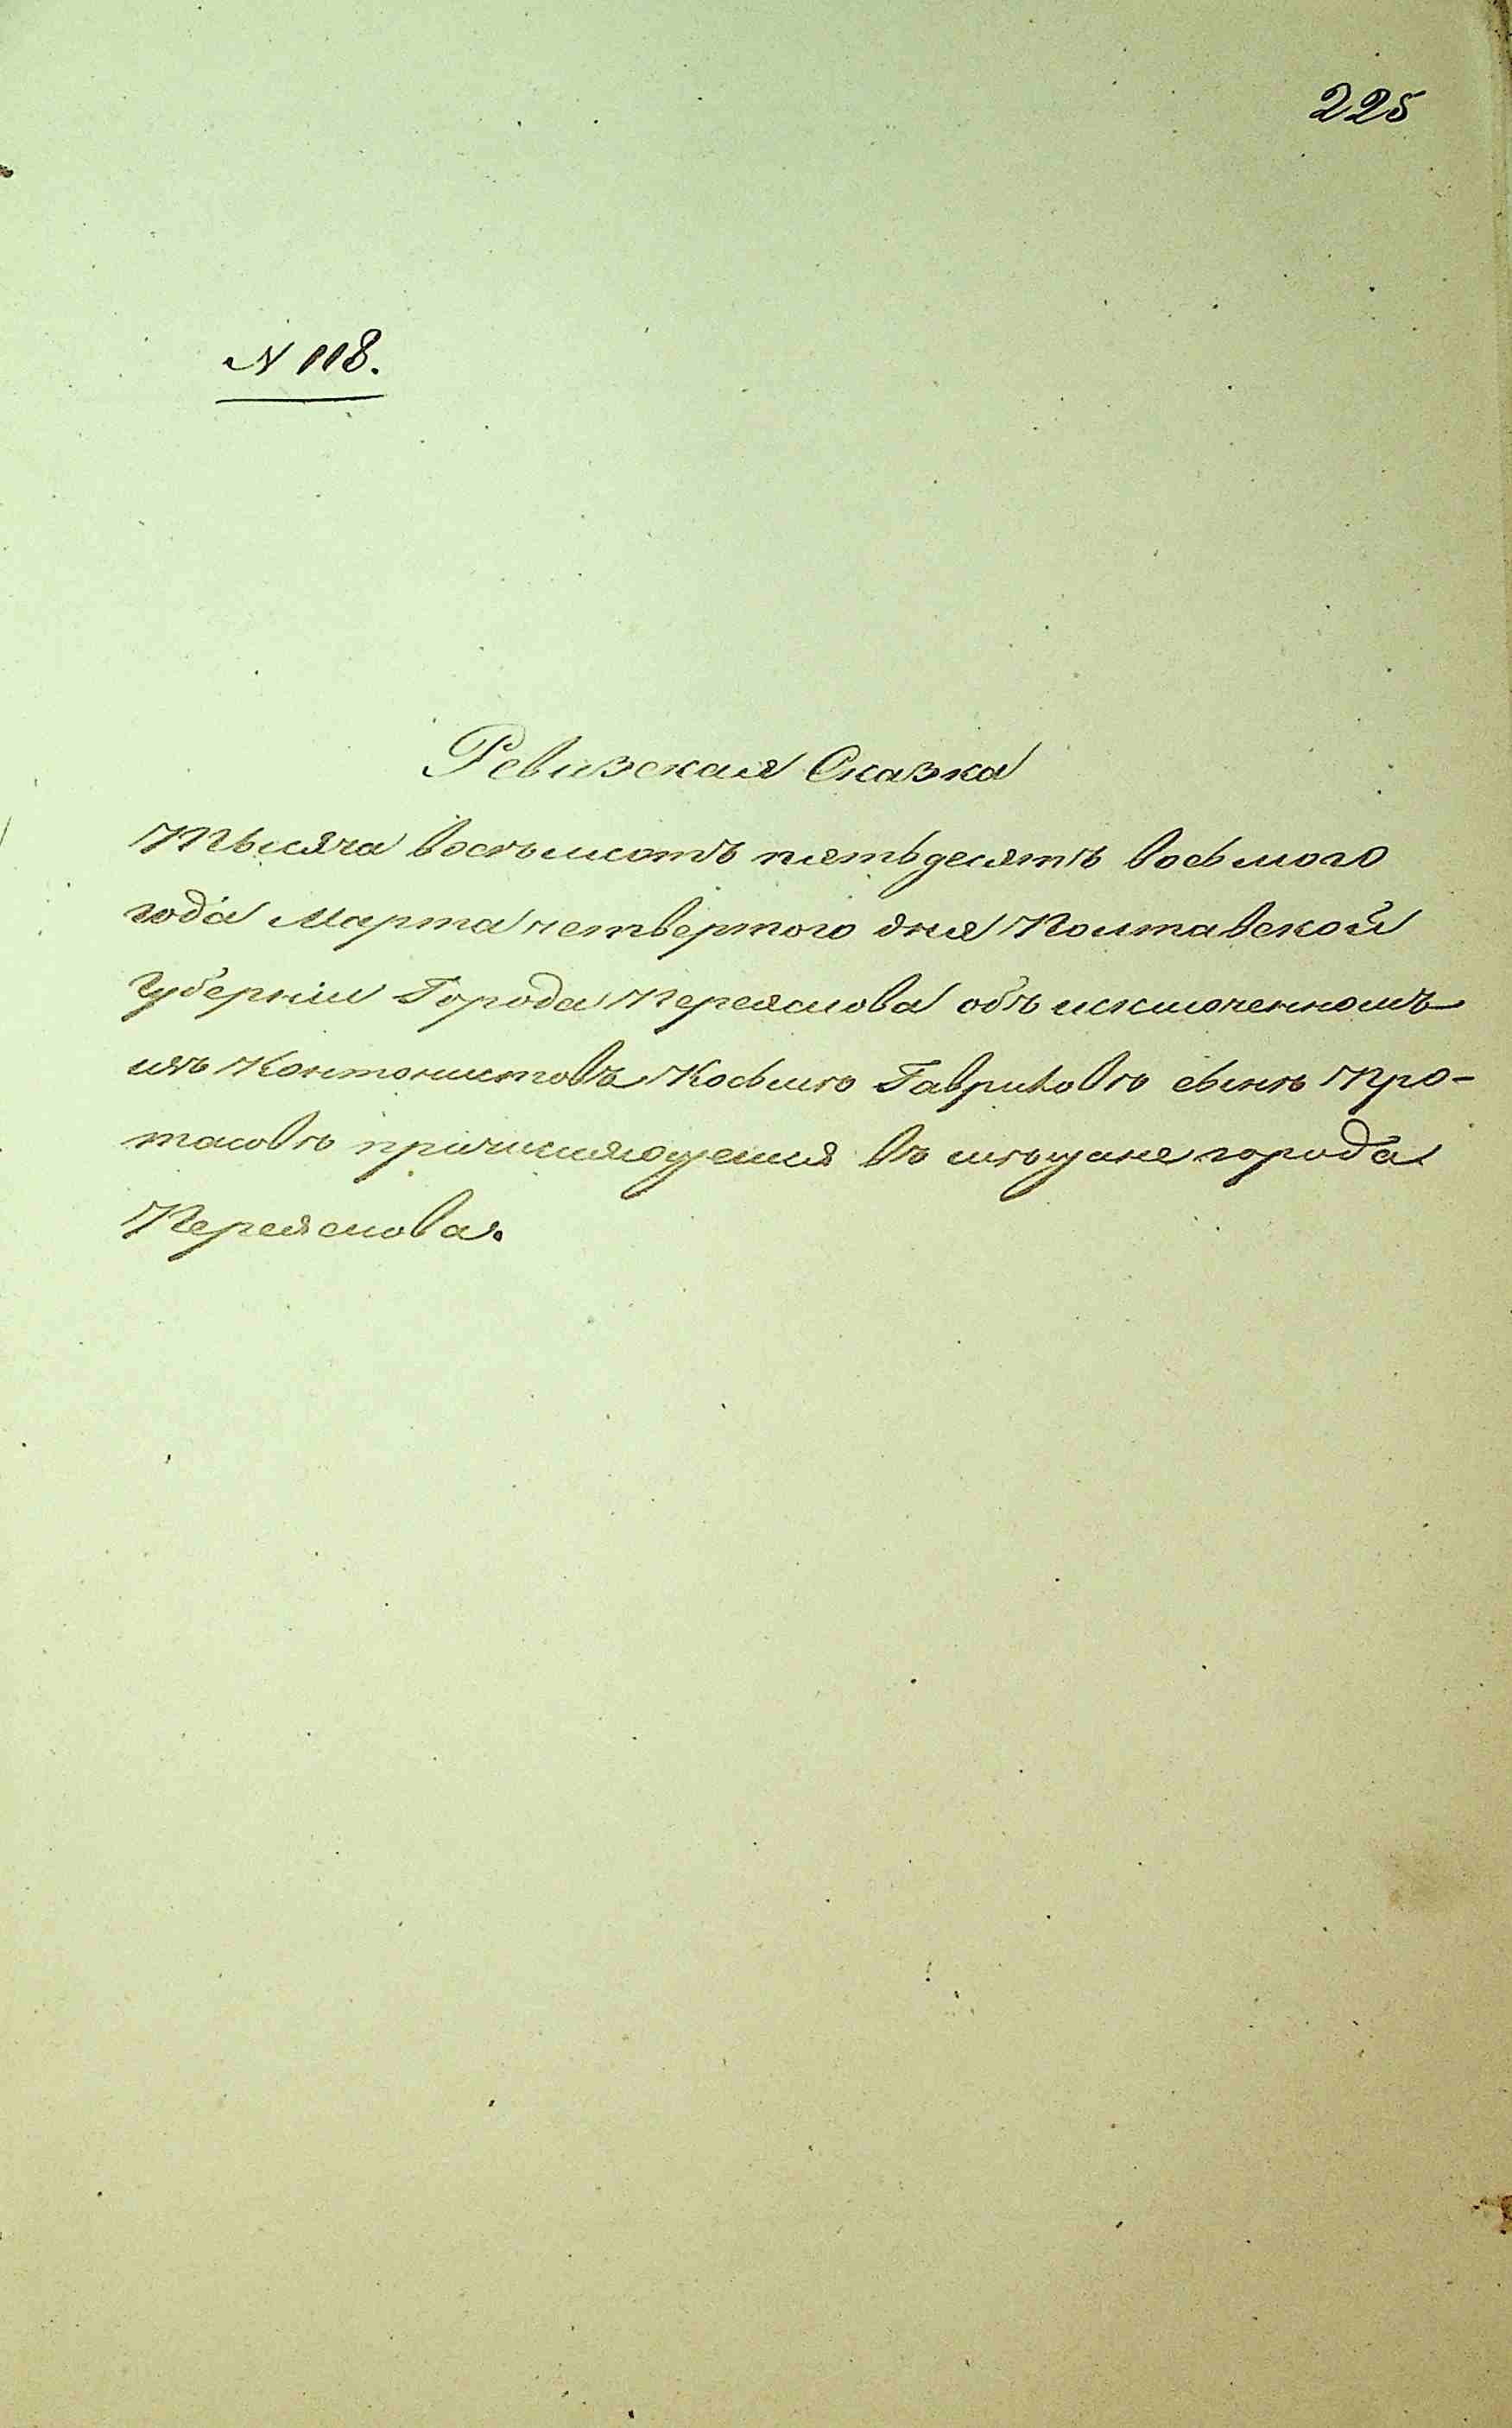 225
N 118.
Ревизская Сказка
Тысяча восемьсотъ пятьдесятъ восьмого
года Марта четвертого дня Полтавской
Губерніи Города Переяслова объ исключенномъ
изъ Контонистовъ Косьмѣ Гавриловъ сынъ Про-
тасовъ причисляющемся въ мѣщане города
Переяслова.